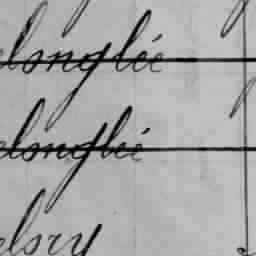 elonglée
elonglée
elory